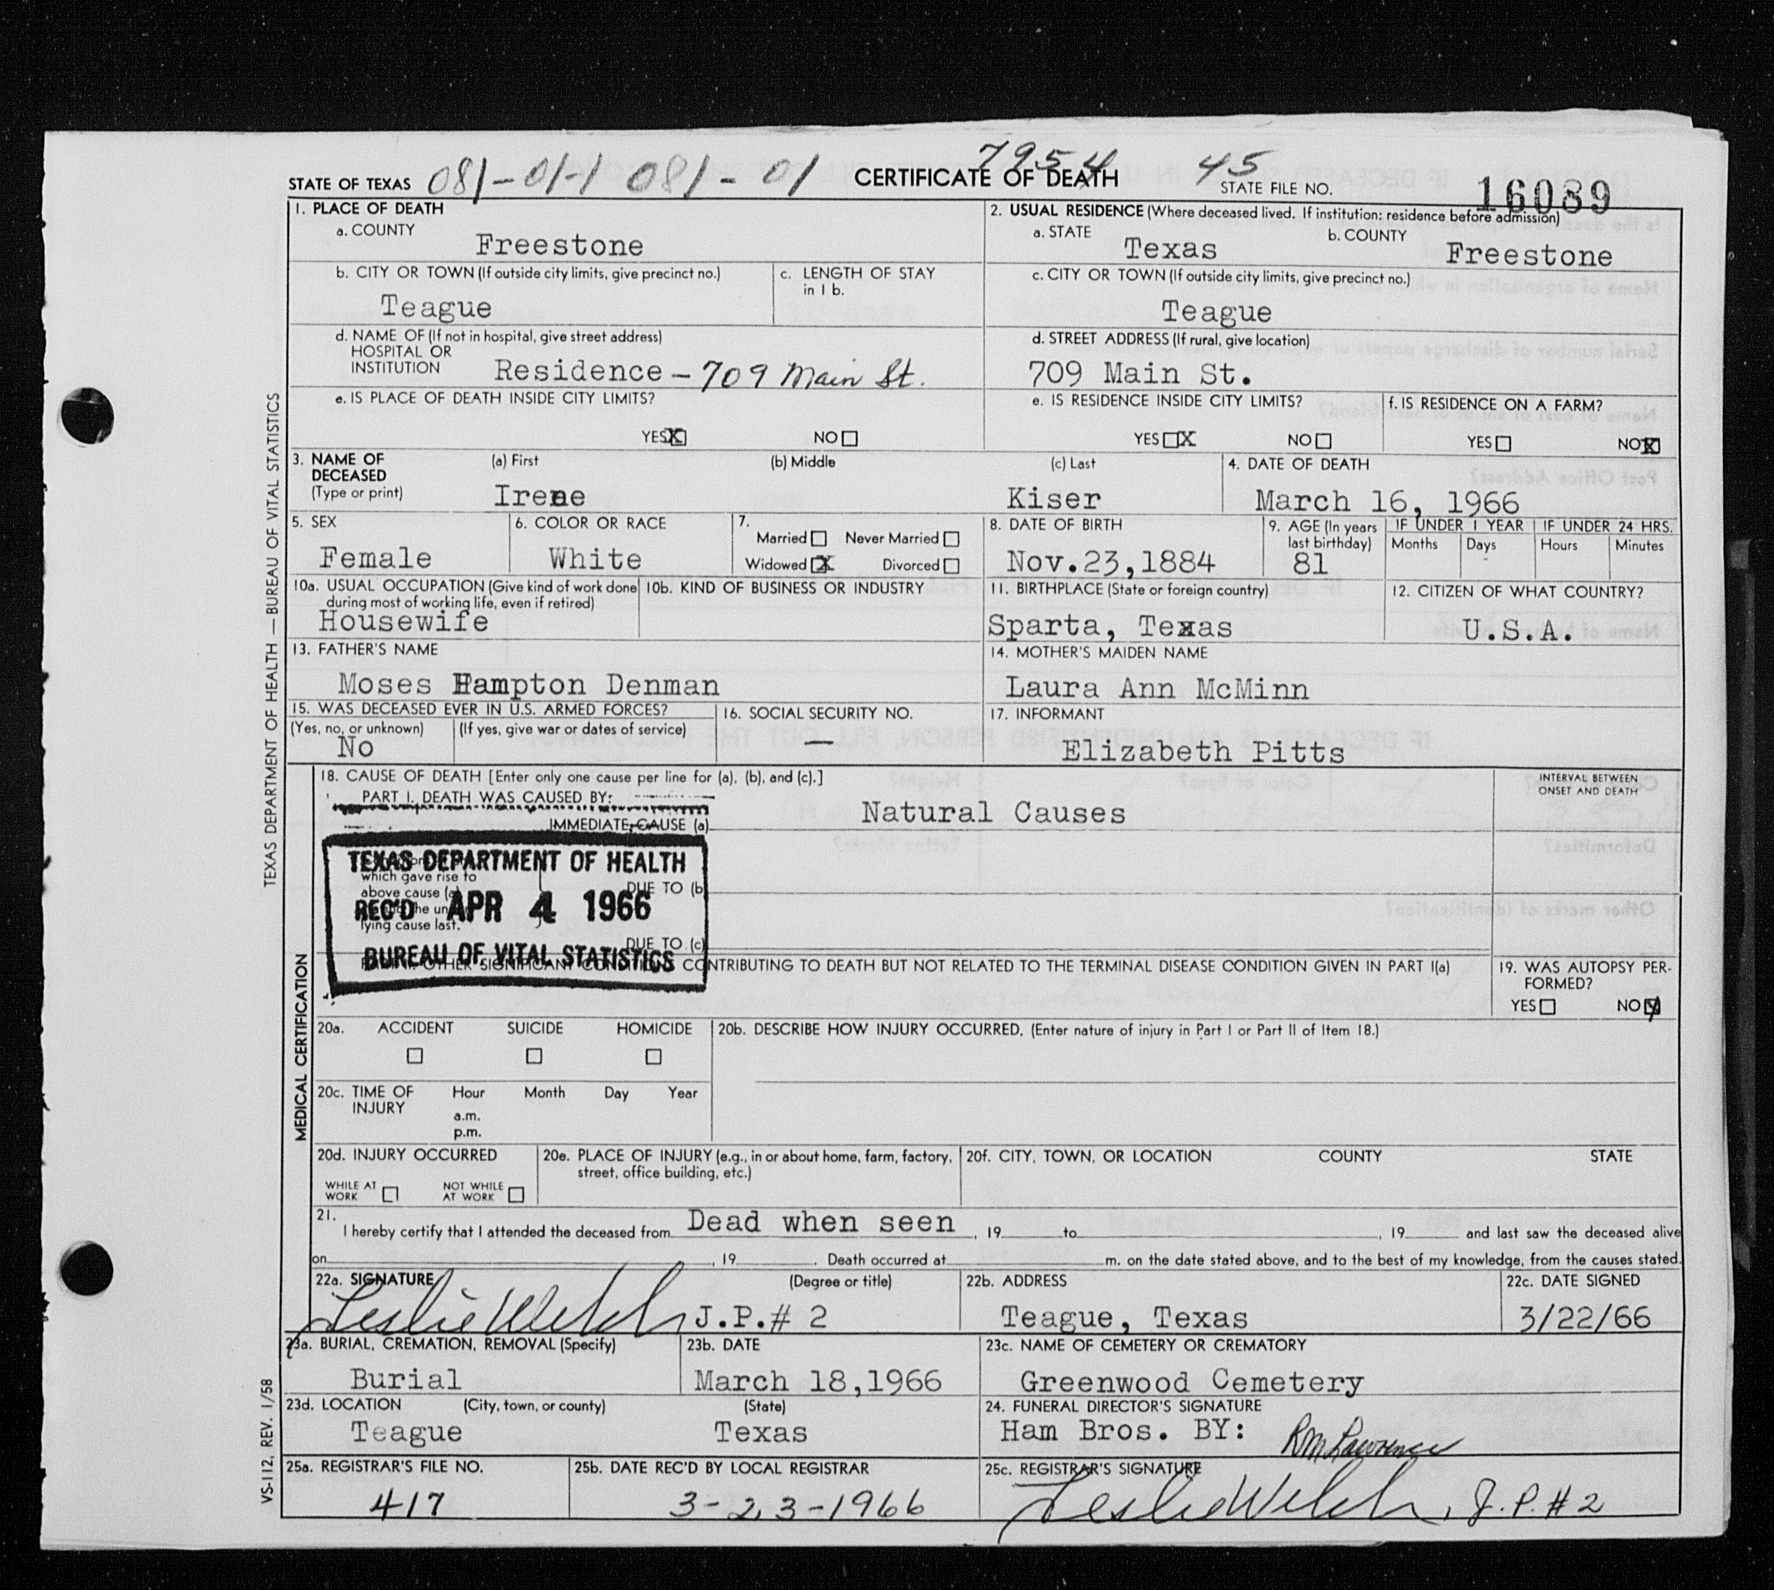 7954 45
STATE OF TEXAS 081-01-1 081-01 CERTIFICATE OF DEATH STATE FILE NO. 16089
1. PLACE OF DEATH
a. COUNTY
Freestone
2. USUAL RESIDENCE (Where deceased lived. If institution: residence before admission)
a. STATE b. COUNTY
Texas Freestone
b. CITY OR TOWN (If outside city limits, give precinct no.)
Teague
c. LENGTH OF STAY
in 1 b.
c. CITY OR TOWN (If outside city limits, give precinct no.)
Teague
d. NAME OF (If not in hospital, give street address)
HOSPITAL OR
INSTITUTION Residence - 709 Main St.
d. STREET ADDRESS (If rural, give location)
709 Main St.
e. IS PLACE OF DEATH INSIDE CITY LIMITS?
YES X NO
e. IS RESIDENCE INSIDE CITY LIMITS?
YES X NO
f. IS RESIDENCE ON A FARM?
YES NO X
3. NAME OF DECEASED
(Type or print)
(a) First (b) Middle (c) Last
Irene Kiser
4. DATE OF DEATH
March 16, 1966
5. SEX
Female
6. COLOR OR RACE
White
7.
Married Never Married
Widowed X Divorced
8. DATE OF BIRTH
Nov.23,1884
9. AGE (In years
last birthday)
81
IF UNDER 1 YEAR IF UNDER 24 HRS.
Months Days Hours Minutes
10a. USUAL OCCUPATION (Give kind of work done
during most of working life, even if retired)
Housewife
10b. KIND OF BUSINESS OR INDUSTRY
11. BIRTHPLACE (State or foreign country)
Sparta, Texas
12. CITIZEN OF WHAT COUNTRY?
U.S.A.
13. FATHER'S NAME
Moses Hampton Denman
14. MOTHER'S MAIDEN NAME
Laura Ann McMinn
15. WAS DECEASED EVER IN U.S. ARMED FORCES?
(Yes, no, or unknown) (If yes, give war or dates of service)
No
16. SOCIAL SECURITY NO.
—
17. INFORMANT
Elizabeth Pitts
18. CAUSE OF DEATH [Enter only one cause per line for (a), (b), and (c).]
PART I. DEATH WAS CAUSED BY:
IMMEDIATE CAUSE (a) Natural Causes
INTERVAL BETWEEN
ONSET AND DEATH
TEXAS DEPARTMENT OF HEALTH
REC'D APR 4 1966
BUREAU OF VITAL STATISTICS
which gave rise to
above cause (a)
lying cause last.
DUE TO (b)
DUE TO (c)
OTHER SIGNIFICANT CONDITIONS CONTRIBUTING TO DEATH BUT NOT RELATED TO THE TERMINAL DISEASE CONDITION GIVEN IN PART I(a)
19. WAS AUTOPSY PER-
FORMED?
YES NO X
20a. ACCIDENT SUICIDE HOMICIDE
20b. DESCRIBE HOW INJURY OCCURRED. (Enter nature of injury in Part I or Part II of Item 18.)
20c. TIME OF Hour Month Day Year
INJURY a.m.
p.m.
20d. INJURY OCCURRED
WHILE AT WORK NOT WHILE AT WORK
20e. PLACE OF INJURY (e.g., in or about home, farm, factory,
street, office building, etc.)
20f. CITY, TOWN, OR LOCATION COUNTY STATE
21.
I hereby certify that I attended the deceased from Dead when seen, 19 to , 19 and last saw the deceased alive
on , 19 . Death occurred at m. on the date stated above, and to the best of my knowledge, from the causes stated.
22a. SIGNATURE (Degree or title)
Leslie Welch J.P.# 2
22b. ADDRESS
Teague, Texas
22c. DATE SIGNED
3/22/66
23a. BURIAL, CREMATION, REMOVAL (Specify)
Burial
23b. DATE
March 18,1966
23c. NAME OF CEMETERY OR CREMATORY
Greenwood Cemetery
23d. LOCATION (City, town, or county) (State)
Teague Texas
24. FUNERAL DIRECTOR'S SIGNATURE
Ham Bros. BY: RM Lawrence
25a. REGISTRAR'S FILE NO.
417
25b. DATE REC'D BY LOCAL REGISTRAR
3-23-1966
25c. REGISTRAR'S SIGNATURE
Leslie Welch, J.P. # 2
TEXAS DEPARTMENT OF HEALTH — BUREAU OF VITAL STATISTICS
MEDICAL CERTIFICATION
VS-112, REV. 1/58